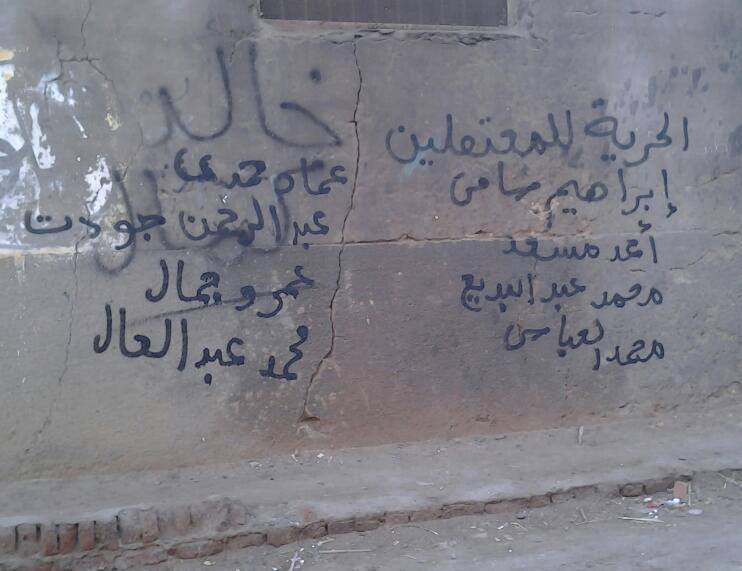 الحرية للمعتقلين
إبراهيم سامى
أحمد مسعد
محمد عبد البديع
محمد العباسى
خالد
عماد حمدى
عبد الرحمن جودت
عمرو جمال
محمد عبد العال